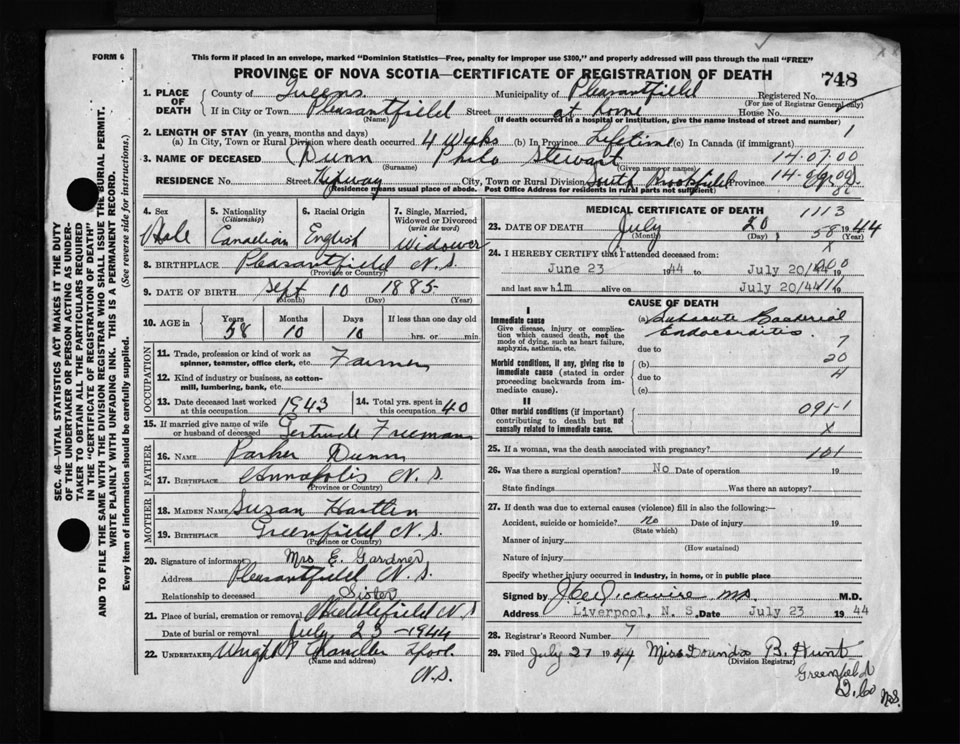 FORM 6
This form if placed in an envelope, marked "Dominion Statistics—Free, penalty for improper use $300," and properly addressed will pass through the mail "FREE"
PROVINCE OF NOVA SCOTIA—CERTIFICATE OF REGISTRATION OF DEATH
748
1. PLACE OF DEATH
County of Queens Municipality of Pleasantfield Registered No.
(For use of Registrar General only)
If in City or Town Pleasantfield Street at home House No.
(Name) (If death occurred in a hospital or institution, give the name instead of street and number)
2. LENGTH OF STAY (in years, months and days)
(a) In City, Town or Rural Division where death occurred 4 weeks (b) In Province Lifetime (c) In Canada (if immigrant)
1
3. NAME OF DECEASED Dunn Philo Stewart 14.07.00
(Surname) (Given name or names)
RESIDENCE No. Street Hipway City, Town or Rural Division South Brookfield Province
(Residence means usual place of abode. Post Office Address for residents in rural parts not sufficient)
4. Sex Male
5. Nationality (Citizenship) Canadian
6. Racial Origin English
7. Single, Married, Widowed or Divorced (write the word) Widower
8. BIRTHPLACE Pleasantfield N.S.
(Province or Country)
9. DATE OF BIRTH Sept 10 1885
(Month) (Day) (Year)
10. AGE in Years 58 Months 10 Days 10 If less than one day old hrs. or min.
OCCUPATION
11. Trade, profession or kind of work as spinner, teamster, office clerk, etc. Farmer
12. Kind of industry or business, as cotton-mill, lumbering, bank, etc.
13. Date deceased last worked at this occupation 1943
14. Total yrs. spent in this occupation 40
15. If married give name of wife or husband of deceased Gertrude Freeman
FATHER
16. Name Parker Dunn
17. Birthplace Annapolis N.S.
(Province or Country)
MOTHER
18. Maiden Name Suzan Hartlin
19. Birthplace Greenfield N.S.
(Province or Country)
20. Signature of informant Mrs E. Gardner
Address Pleasantfield N.S.
Relationship to deceased Sister
21. Place of burial, cremation or removal Middlefield N.S
Date of burial or removal July 23-1944
22. Undertaker Wright Chandler Lpool
(Name and address)
N.S.
MEDICAL CERTIFICATE OF DEATH
1113
23. DATE OF DEATH July 20 1944
58
(Month) (Day) (Year)
x
24. I HEREBY CERTIFY that I attended deceased from:
June 23 1944 to July 20/44 19
and last saw him alive on July 20/44 19
CAUSE OF DEATH
I
Immediate cause
Give disease, injury or complication which caused death, not the mode of dying, such as heart failure, asphyxia, asthenia, etc.
(a) Subacute Bacterial
Endocarditis
7
due to
Morbid conditions, if any, giving rise to immediate cause (stated in order proceeding backwards from immediate cause).
(b) 20
due to 4
(c)
II
Other morbid conditions (if important) contributing to death but not causally related to immediate cause.
091-1
x
25. If a woman, was the death associated with pregnancy? 101
26. Was there a surgical operation? No Date of operation 19
State findings Was there an autopsy?
27. If death was due to external causes (violence) fill in also the following:—
Accident, suicide or homicide? no Date of injury 19
(State which)
Manner of injury
(How sustained)
Nature of injury
Specify whether injury occurred in industry, in home, or in public place
Signed by J.C. Wickwire MD. M.D.
Address Liverpool, N. S. Date July 23 1944
28. Registrar's Record Number 7
29. Filed July 27 1944 Miss B. Hunt
(Division Registrar)
Greenfield
Q. Co N.S.
SEC. 46—VITAL STATISTICS ACT MAKES IT THE DUTY
OF THE UNDERTAKER OR PERSON ACTING AS UNDER-
TAKER TO OBTAIN ALL THE PARTICULARS REQUIRED
IN THE "CERTIFICATE OF REGISTRATION OF DEATH"
AND TO FILE THE SAME WITH THE DIVISION REGISTRAR WHO SHALL ISSUE THE BURIAL PERMIT.
WRITE PLAINLY WITH UNFADING INK. THIS IS A PERMANENT RECORD.
Every item of information should be carefully supplied. (See reverse side for instructions.)